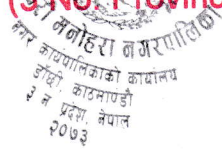 (3 No. Provinc
मनोहरा नगरपालिका
नगर कार्यपालिकाको कार्यालय
डाँछी, काठमाण्डौ
३ नं प्रदेश, नेपाल
२०७३